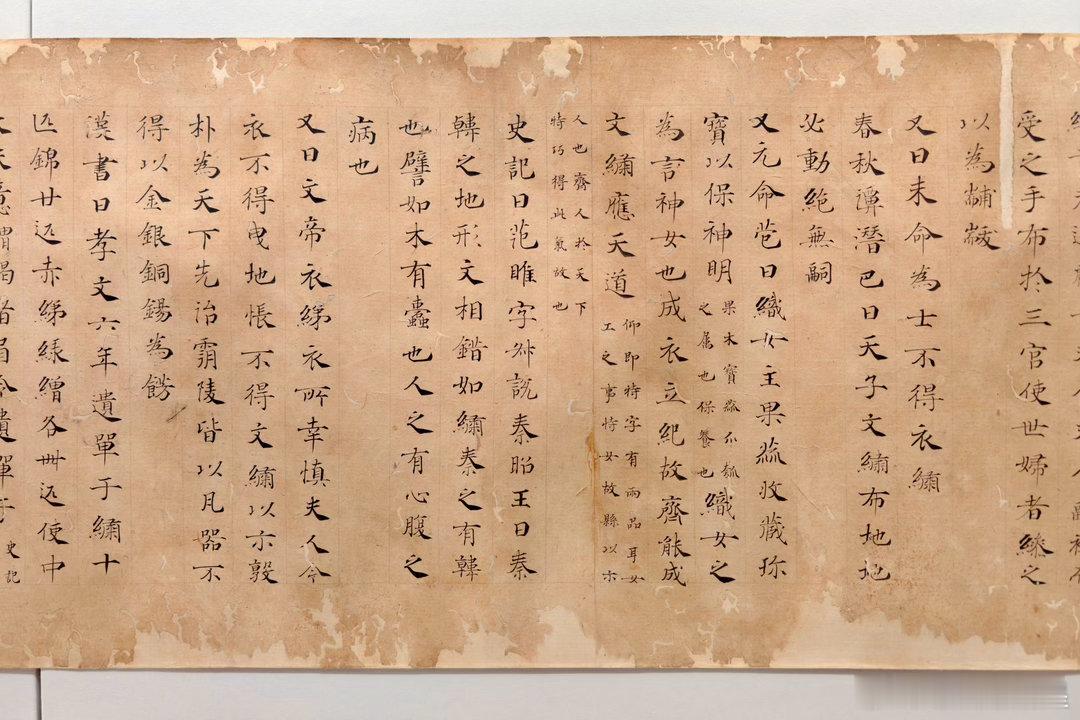 受之手布於三官使世婦者繰之
以為黼黻
又曰未命為士不得衣繡
春秋潭潜巴曰天子文繡布地地
必動絶無嗣
又元命苞曰織女主果蓏收蔵珎
寶以保神明果木實蓏爪瓠之属也保養也織女之
為言神女也成衣立紀故齊能成
文繡應天道仰即特字有兩品耳女工之事恃女故縣以示
人也齊人於天下特巧得此氣故也
史記曰范睢字叔説秦昭王曰秦
韓之地形文相錯如繡秦之有韓
也譬如木有蠹也人之有心腹之
病也
又曰文帝衣綈衣所幸慎夫人令
衣不得曳地帳不得文繡以示敦
朴為天下先治霸陵皆以凡器不
得以金銀銅錫為餝
漢書曰孝文六年遺單于繡十
匹錦廿匹赤綈緑繒各卌匹使中
大夫意謂者肩令遺單于史記